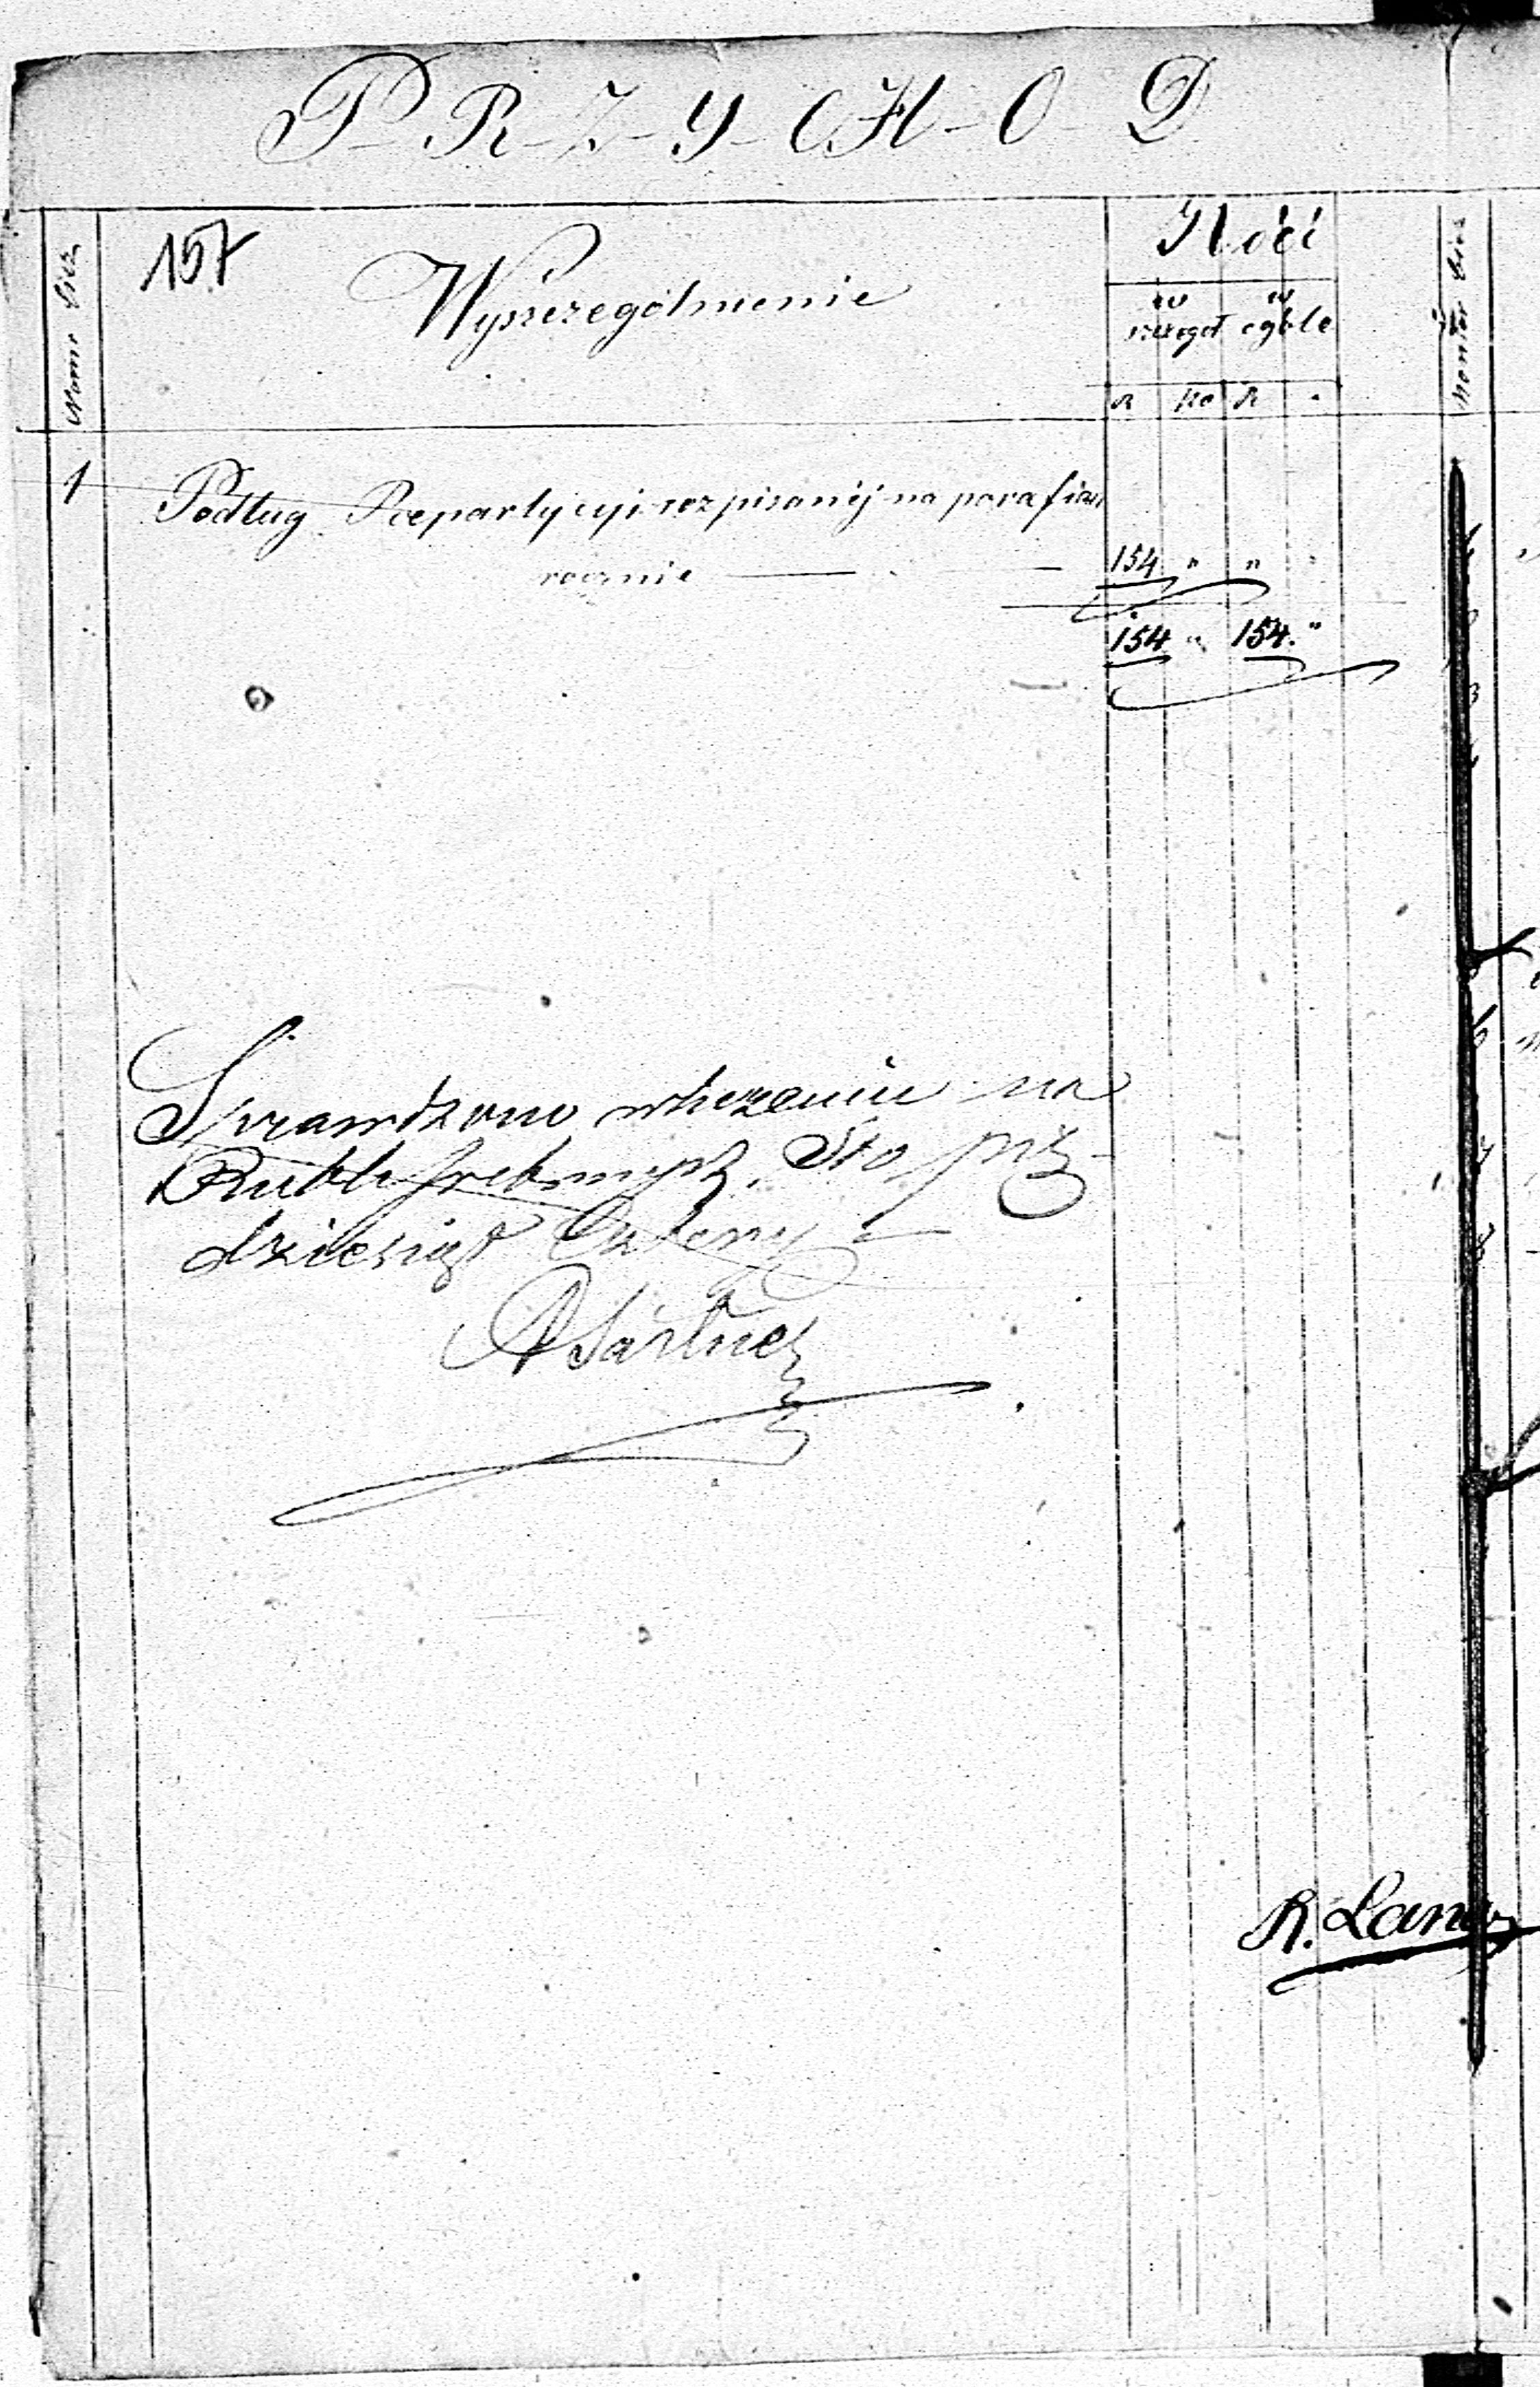 P-R-Z-Y-CH-O-D
157
Numr bież
Wyszczególnienie
Ilość
w szczegół
w ogóle
R ko R
Numer bież
1
Podług Repartycyi rozpisanéj na parafian
rocznie 154 " "
154 " 154. "
Sprawdzono w liczeniu na
Rubli srebrnych, Sto pię-
dziesiąt Cztery
R. Lan